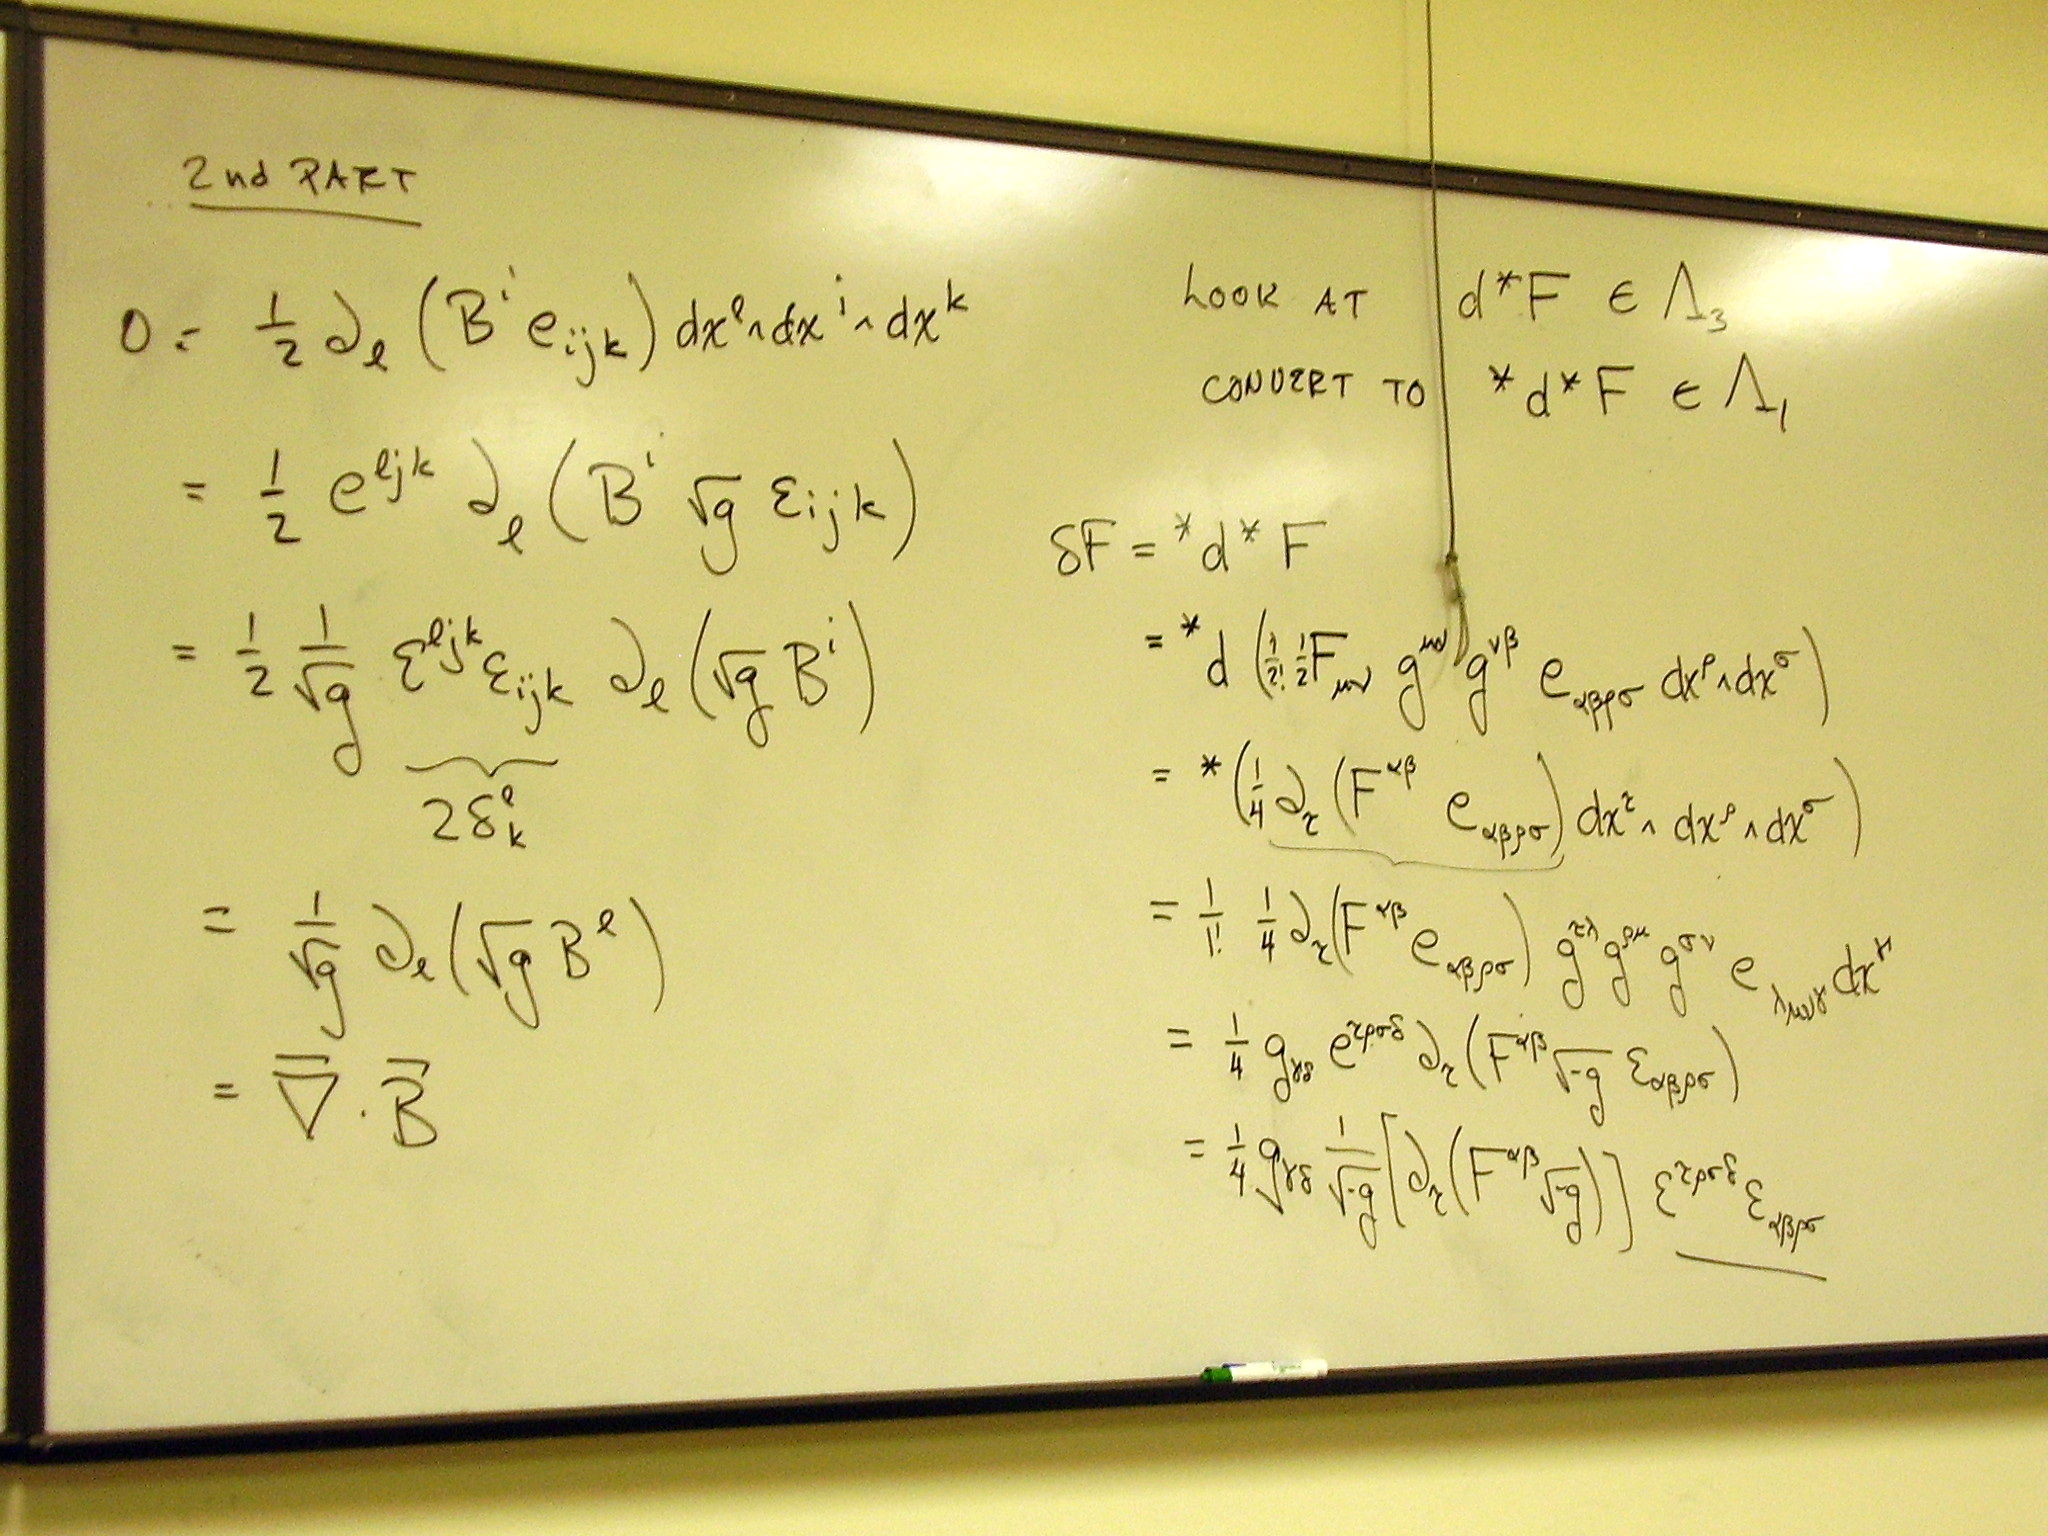 2nd PART
0 = 1/2 ∂_ℓ (B^i e_ijk) dx^ℓ ∧ dx^j ∧ dx^k
= 1/2 e^ℓjk ∂_ℓ (B^i √g ε_ijk)
= 1/2 1/√g ε^ℓjk ε_ijk ∂_ℓ (√g B^i)
2δ^ℓ_k
= 1/√g ∂_ℓ (√g B^ℓ)
= ∇ · B
LOOK AT d*F ∈ Λ_3
CONVERT TO *d*F ∈ Λ_1
δF = *d*F
= *d (1/2! 1/2 F_μν g^μν g^νβ e_αβρσ dx^ρ ∧ dx^σ)
= *(1/4 ∂_τ (F^αβ e_αβρσ) dx^τ ∧ dx^ρ ∧ dx^σ)
= 1/1! 1/4 ∂_τ (F^αβ e_αβρσ) g^τλ g^ρμ g^σν e_λμνγ dx^γ
= 1/4 g_γδ e^τρσδ ∂_τ (F^αβ √-g ε_αβρσ)
= 1/4 g_γδ 1/√-g [∂_τ (F^αβ √-g)] ε^τρσδ ε_αβρσ